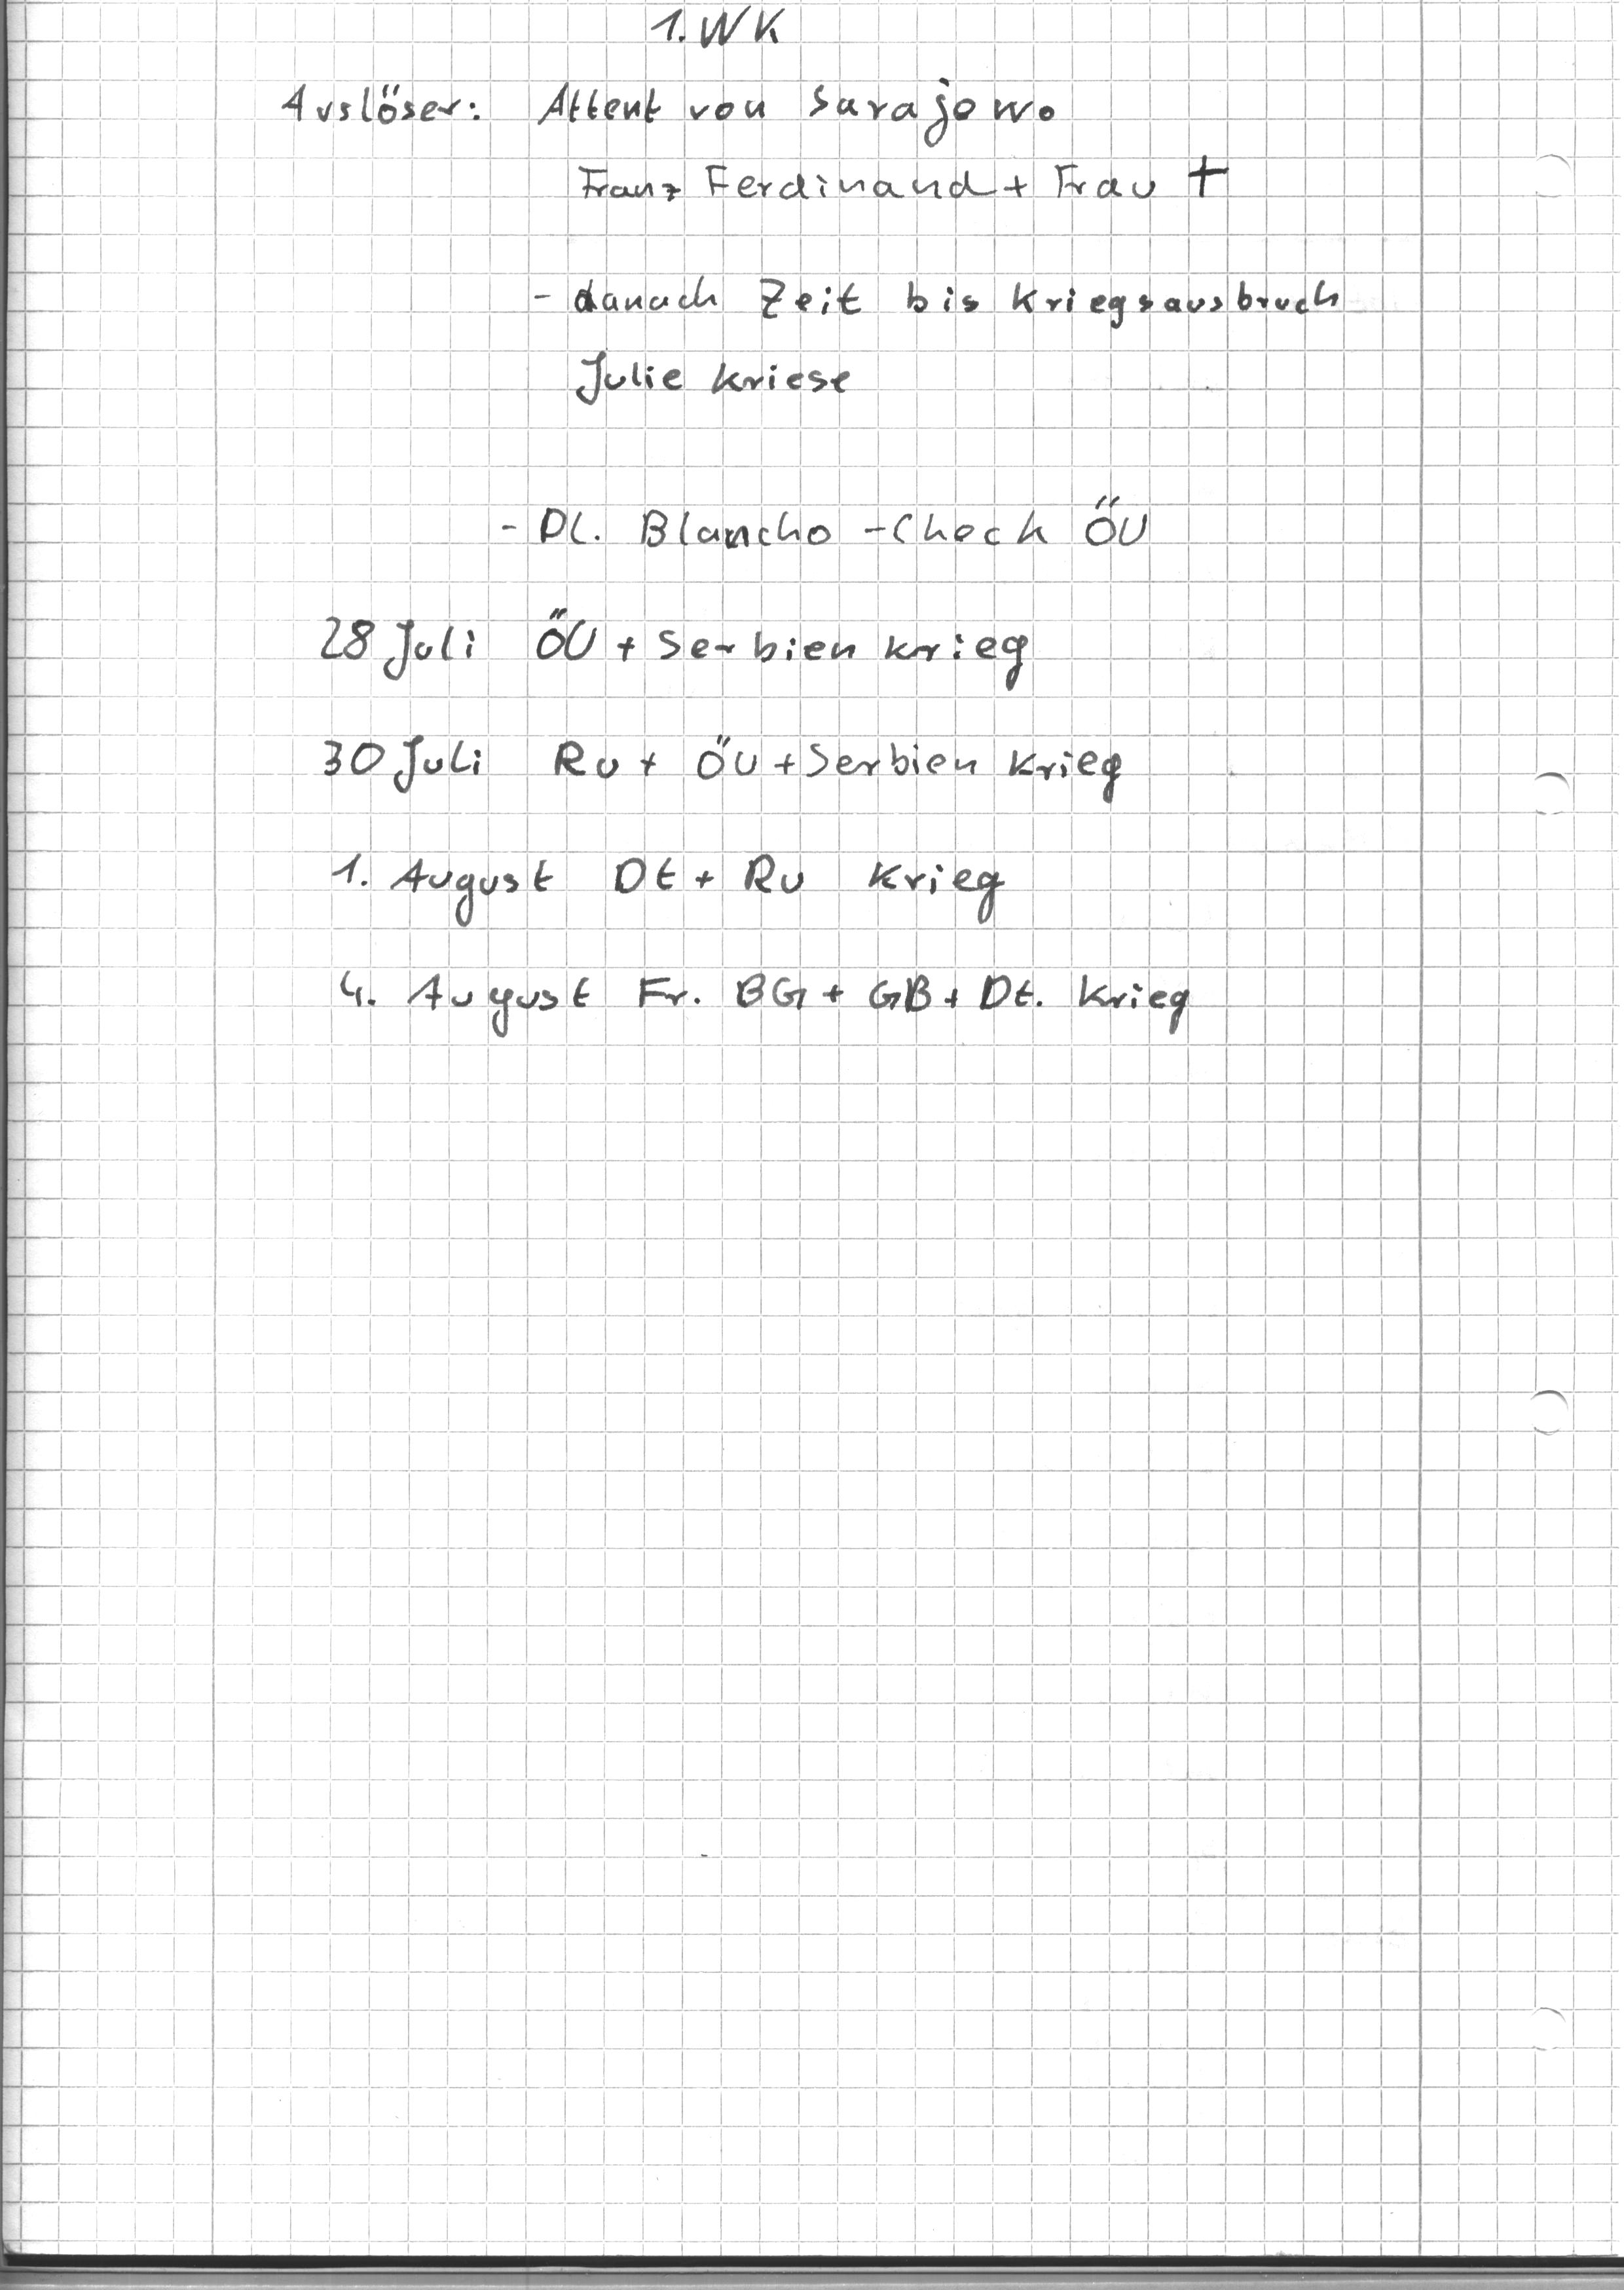 1. WK
Auslöser: Attent von Sarajowo
Franz Ferdinand + Frau †
- danach Zeit bis Kriegsausbruch
Julie Kriese
- Dt. Blancho - Check ÖU
28 Juli ÖU + Serbien krieg
30 Juli Ru + ÖU + Serbien Krieg
1. August Dt + Ru Krieg
4. August Fr. BG + GB + Dt. Krieg